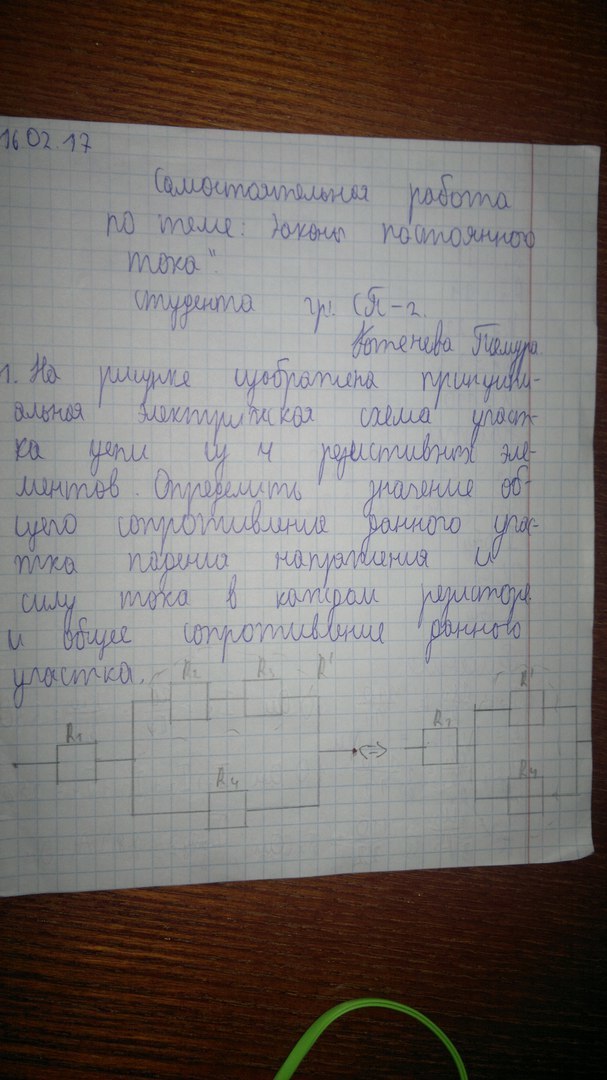 16.02.17
Самостоятельная работа
по теме: Законы постоянного
тока".
студента гр. СП-2.
1. На рисунке изображена принципи-
альная электрическая схема участ-
ка цепи из 4 резистивных эле-
ментов. Определить значение об-
щего сопротивление данного учас-
тка падения напряжения и
силу тока в каждом резисторе
и общее сопротивление данного
участка.
R1 R2 R3 R' R4 <=> R1 R' R4